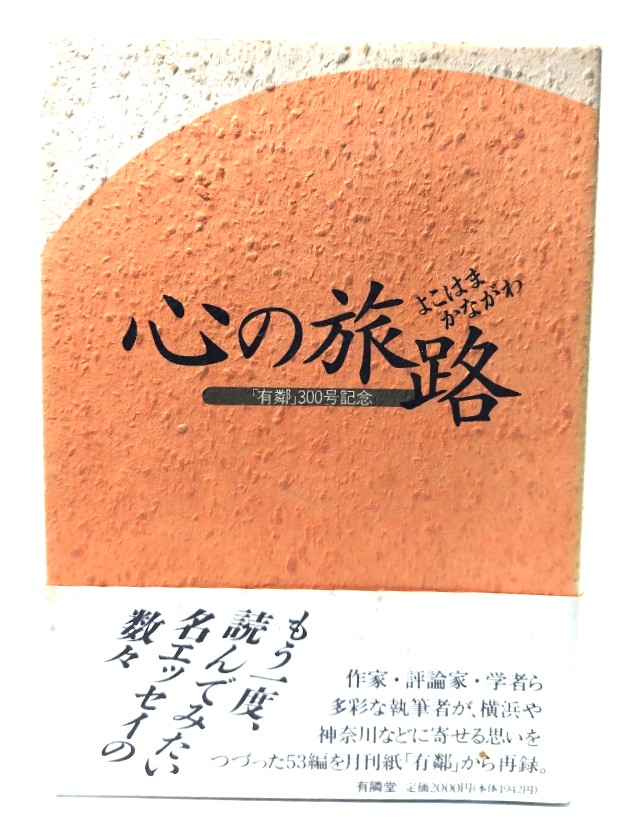 よこはま
かながわ
心の旅路
「有鄰」300号記念
もう一度、
読んでみたい
名エッセイの
数々
作家・評論家・学者ら
多彩な執筆者が、横浜や
神奈川などに寄せる思いを
つづった53編を月刊紙「有鄰」から再録。
有隣堂 定価2000円(本体1942円)